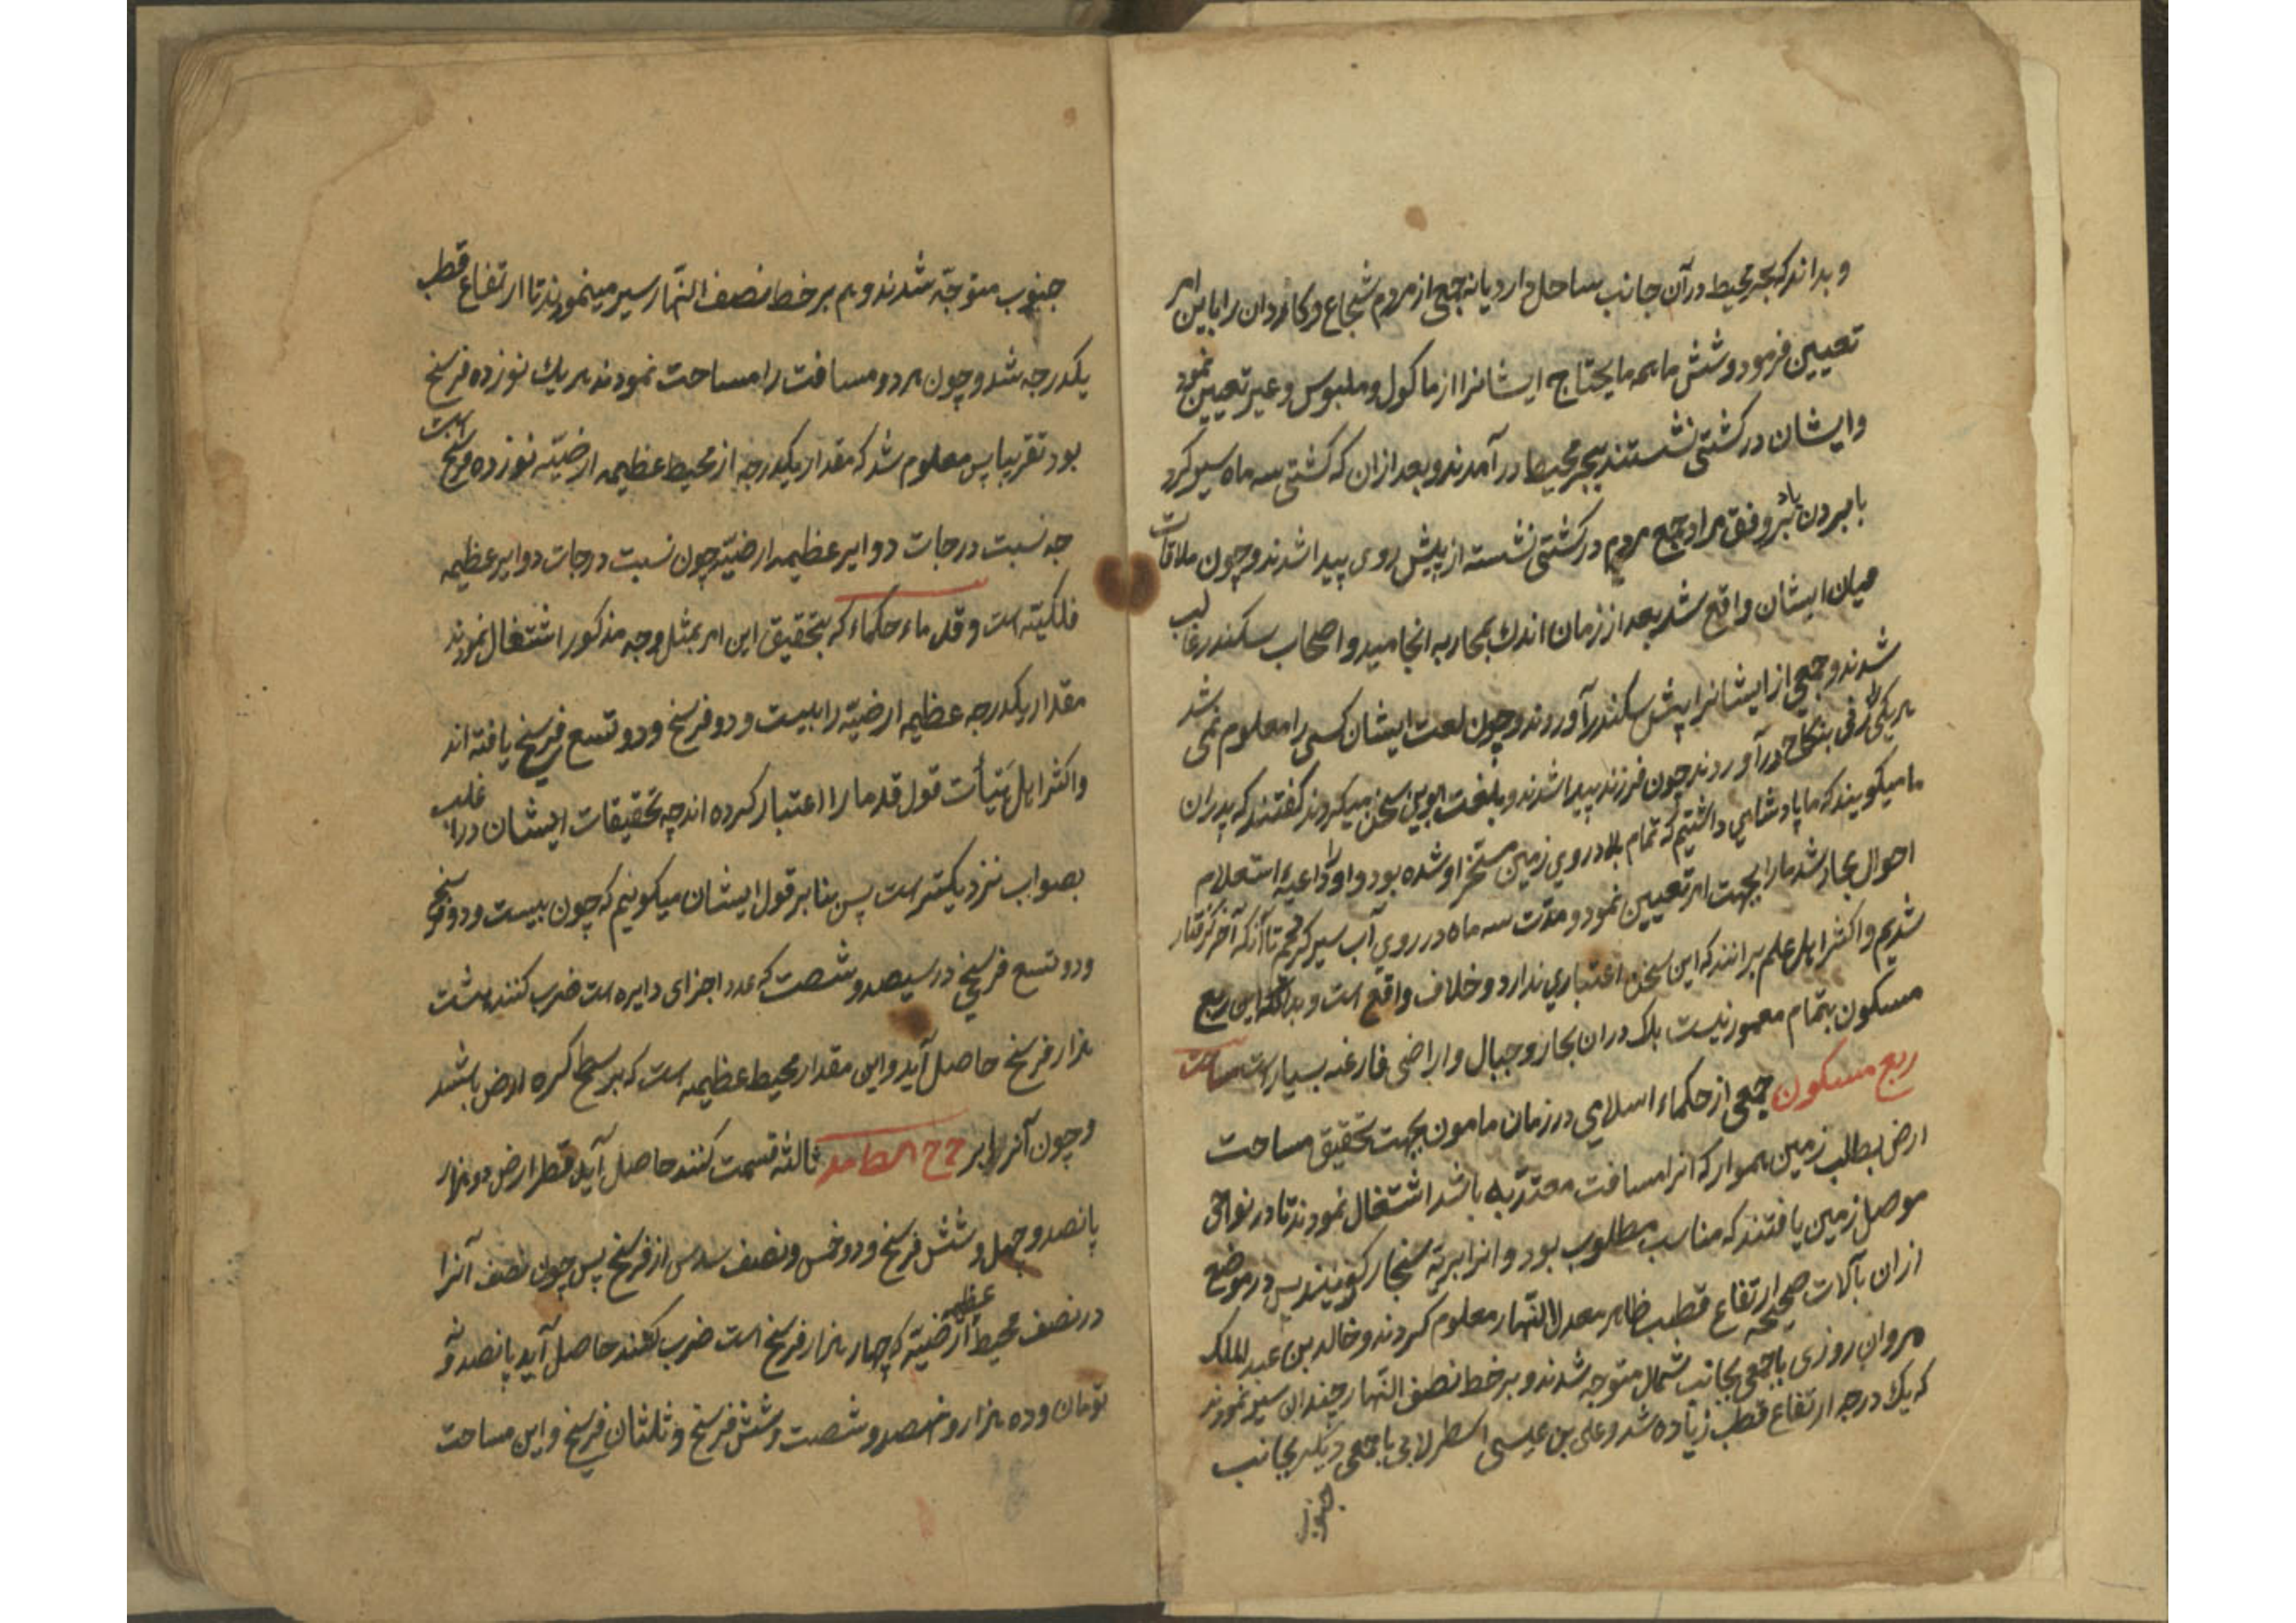 و بداند که بحر محیط در آن جانب ساحل دارد یا نه جمعی از مردم شجاع و کاردان را باین امر
تعیین فرمود و شش ماهه ما یحتاج ایشانرا از ماکول و ملبوس و غیر تعیین نمود
و ایشان در کشتی نشستند ببحر محیط در آمدند و بعد از ان که کشتی سه ماه سیر کرد
بامبردن باد بر وفق مراد جمع مردم در کشتی نشسته از پیش روی پیدا شدند و چون ملاقات
میان ایشان واقع شد بعد از زمان اندک بمحاربه انجامید و اصحاب سکندر غالب
شدند و جمعی از ایشانرا پیش سکندر آوردند و چون لغت ایشان کسی را معلوم نمی شد
هر یکی را زنی بنکاح در آوردند چون فرزند پیدا شدند و بلغت ابوین سخن میکردند گفتند که پدران
ما میکویند که ما پادشاهی داشتیم که تمام بلاد روی زمین مسخر او شده بود و او را داعیهٔ استعلام
احوال بحار شد ما را بجهت امر تعیین نمود و مدّت سه ماه در روی آب سیر کردیم تا آنکه آخر کرفتار
شدیم و اکثر اهل علم برانند که این سخن اعتباری ندارد و خلاف واقع است و بدانکه این ربع
مسکون بتمام معمور نیست بلک در ان بحار و جبال و اراضی فارغه بسیار است مساحت
ربع مسکون جمعی از حکماء اسلامی در زمان مامون بجهت تحقیق مساحت
ارض بطلب زمین هموار که انرا مسافت معتدّ به باشد اشتغال نمودند تا در نواحی
موصل زمین یافتند که مناسب مطلوب بود و انرا بریّه سنجار کویند پس در موضع
ازان بآلات صحیحه ارتفاع قطب ظاهر معدل النّهار معلوم کردند و خالد بن عبد الملک
مروان روزی با جمعی بجانب شمال متوجه شدند و بر خط نصف النّهار چندان سیر نمودند
که یک درجه ارتفاع قطب زیاده شد و علی بن عیسی اسطرلابی با جمعی دیکر بجانب
جنوب
جنوب متوجّه شدند و هم بر خط نصف النّهار سیر مینمودند تا ارتفاع قطب
یکدرجه شد و چون هر دو مسافت را مساحت نمودند هر یک نوزده فرسخ
بود تقریبا پس معلوم شد که مقدار یکدرجه از محیط عظیمه ارضیّه نوزده فرسخ است
چه نسبت درجات دوایر عظیمه ارضیّه چون نسبت درجات دوایر عظیمه
فلکیّه است و قدماء حکماء که بتحقیق این امر بمثل وجه مذکور اشتغال نمودند
مقدار یکدرجه عظیمه ارضیّه را بیست و دو فرسخ و دو تسع فرسخ یافته اند
و اکثر اهل هیأت قول قدما را اعتبار کرده اند چه تحقیقات ایشان در اغلب
بصواب نزدیکتر است پس بنا بر قول ایشان میکوئیم که چون بیست و دو فرسخ
و دو تسع فرسخ در سیصد و شصت که عدد اجزای دایره است ضرب کنند هشت
هزار فرسخ حاصل آید و این مقدار محیط عظیمه است که بر سطح کره ارض باشد
و چون آنرا بر ثالثه قسمت کنند حاصل آید قطر ارض دو هزار
پانصد و چهل و شش فرسخ و دو خمس و نصف سدس از فرسخ پس چون نصف آنرا
در نصف محیط عظیمه ارضیّه که چهار هزار فرسخ است ضرب کنند حاصل آید پانصد و نه
تومان و ده هزار و نهصد و شصت و شش فرسخ و ثلثان فرسخ و این مساحت